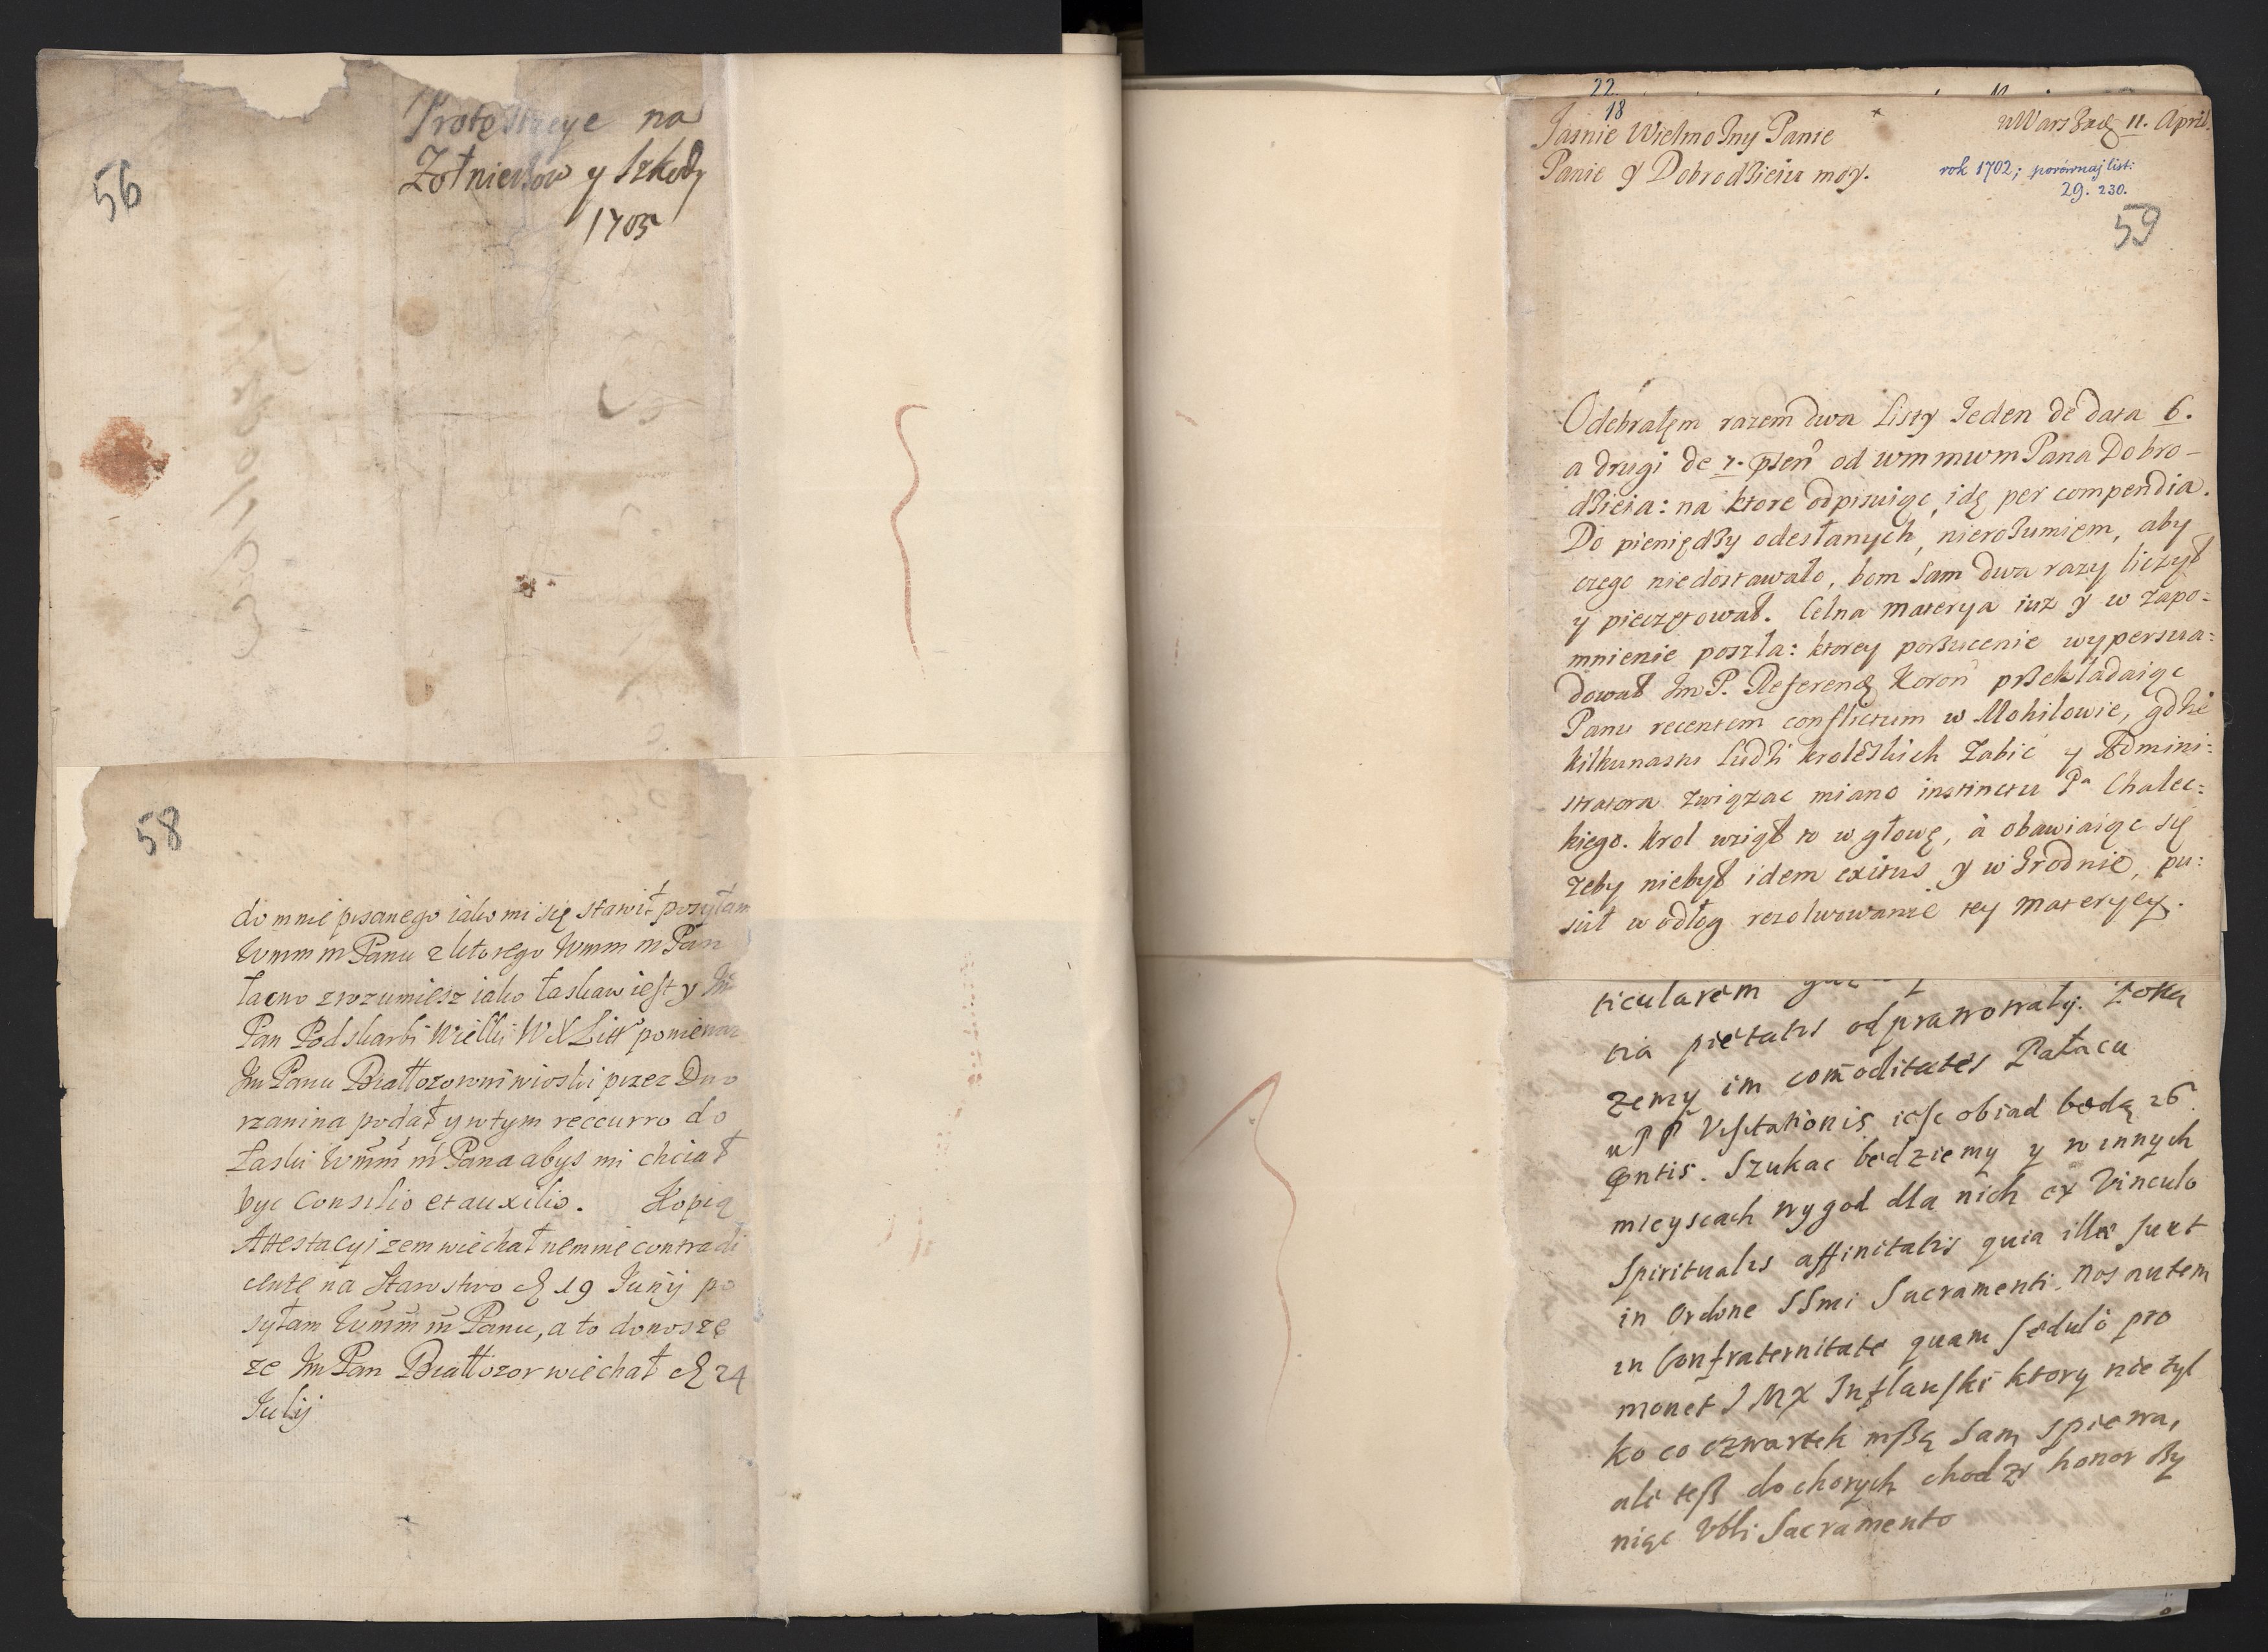 56
Protestacye na
Zołnierzow y Szkody
1705
58
do mnie pisanego iako mi się stawił posyłam
Wmm m Panu z ktorego Wmm m Pan
łacno zrozumiesz iako łaskaw iest y Im
Pan Podskarbi Wielki W X Litt poniewaz
Im Panu Białłozorowi wioski przez Dwo
rzanina podał y wtym reccurro do
Łaski Wmm m Pana abys mi chciał
byc Consilio et auxilio. Kopią
Attestacyi zem wiechał nemine contradi
cente na Starostwo d 19 Junij po
syłam Wmm m Panu, a to donoszę
ze Im Pan Białłozor wiechał d 24
Julij
22.
18
Jasnie Wielmożny Panie
Panie y Dobrodzieiu moy.
w Warszaw 11. April.
rok 1702; porównaj list:
29. 230.
59
Odebrałem razem dwa Listy Ieden de data 6.
a drugi de 7. psen od wmmwm Pana Dobro-
dzieia: na ktore odpisuiąc, idę per compendia.
Do pieniędzy odesłanych, nierozumięm, aby
czego niedostawało, bom sam dwa razy liczył
y pieczętował. Celna materya iuz y w zapo=
mnienie poszła: ktorey porzucenie wyperswa=
dował Im P. Referend Koron przekładaiąc
Panu recentem conflictum w Mohilowie, gdzie
kilkunastu ludzi krolewskich zabić y Admini=
stratora związac miano instinctu Pa Chalec=
kiego. Krol wziął to w głowę, à obawiaiąc się
zeby niebył idem exitus y w Grodnie, pu=
scił w odłog rezolwowanie tey materyey.
ticularem
tia pietatis odprawowały.
zemy im com̄oditates Pałacu
u PP Visitationis iesc obiad będą 26
Entis. Szukac będziemy y w innych
mieyscach wygod dla nich ex Vinculo
Spiritualis affinitatis quia illæ sunt
in Ordine SSmi Sacramenti. nos autem
in Confraternitate quam sedulò pro
monet J MX Inflanski ktory nie tyl
ko co czwartek mszę sam spiewa,
ale tesz do chorych chodzi honor czy
niąc Vbli Sacramento